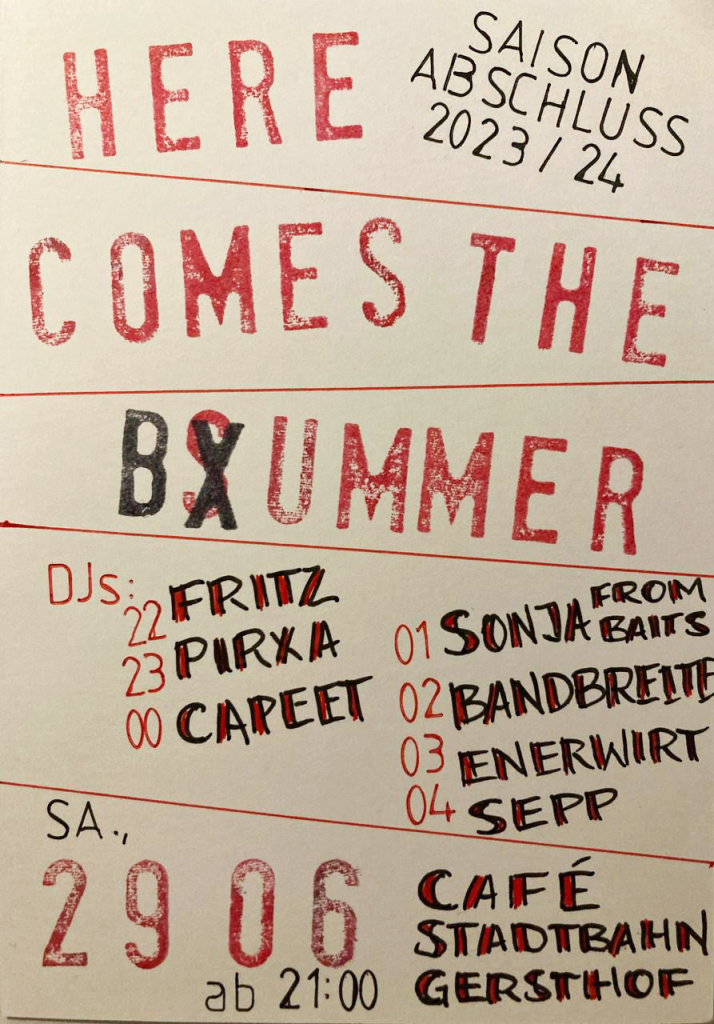 HERE
SAISON
ABSCHLUSS
2023/24
COMES THE
BXUMMER
DJs:
22 FRITZ
23 PIRXA
00 CAPEET
01 SONJA FROM BAITS
02 BANDBREITE
03 ENERWIRT
04 SEPP
SA.,
29 06
ab 21:00
CAFÉ
STADTBAHN
GERSTHOF